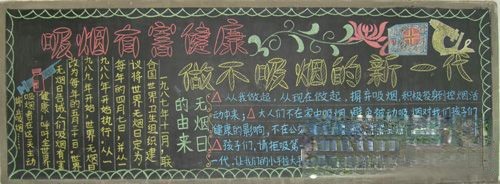 吸烟有害健康
做不吸烟的新一代
无烟日的由来
一九八七年十一月，联
合国世界卫生组织建
议将世界无烟日定为
每年的四月七日，并从一
九八八年开始执行，从一
九八九年开始，世界无烟日
改为每年的五月三十一日，世界
无烟日告诫人们吸烟有害
健康，呼吁全世界
吸烟者在这天主动
△从我做起，从现在做起，摒弃吸烟，积极投身到控烟活
动中来；△大人们不在家中吸烟
健康的影响，不在公
△孩子们，请拒吸第
一代，让我们的小手拉大手